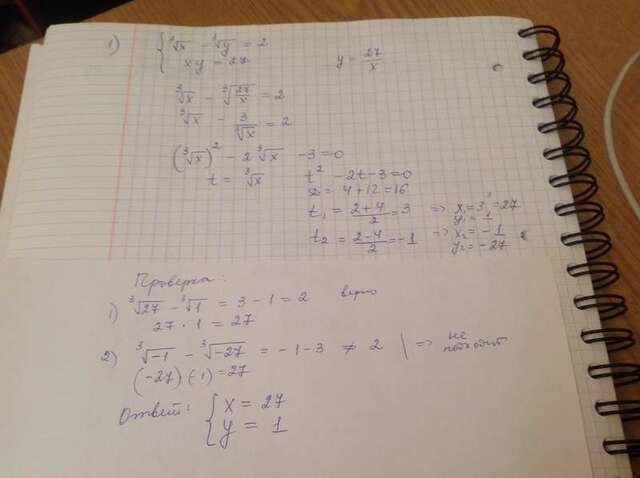 1) { ∛x − ∛y = 2
xy = 27 y = 27/x
∛x − ∛(27/x) = 2
∛x − 3/∛x = 2
(∛x)² − 2∛x − 3 = 0
t = ∛x t² − 2t − 3 = 0
D = 4 + 12 = 16
t₁ = (2+4)/2 = 3 => x₁ = 3³ = 27
y₁ = 1
t₂ = (2−4)/2 = −1 => x₂ = −1
y₂ = −27
Проверка:
1) ∛27 − ∛1 = 3 − 1 = 2 верно
27 · 1 = 27
2) ∛−1 − ∛−27 = −1 − 3 ≠ 2 | => не подходит
(−27)(−1) = 27
Ответ: { x = 27
y = 1